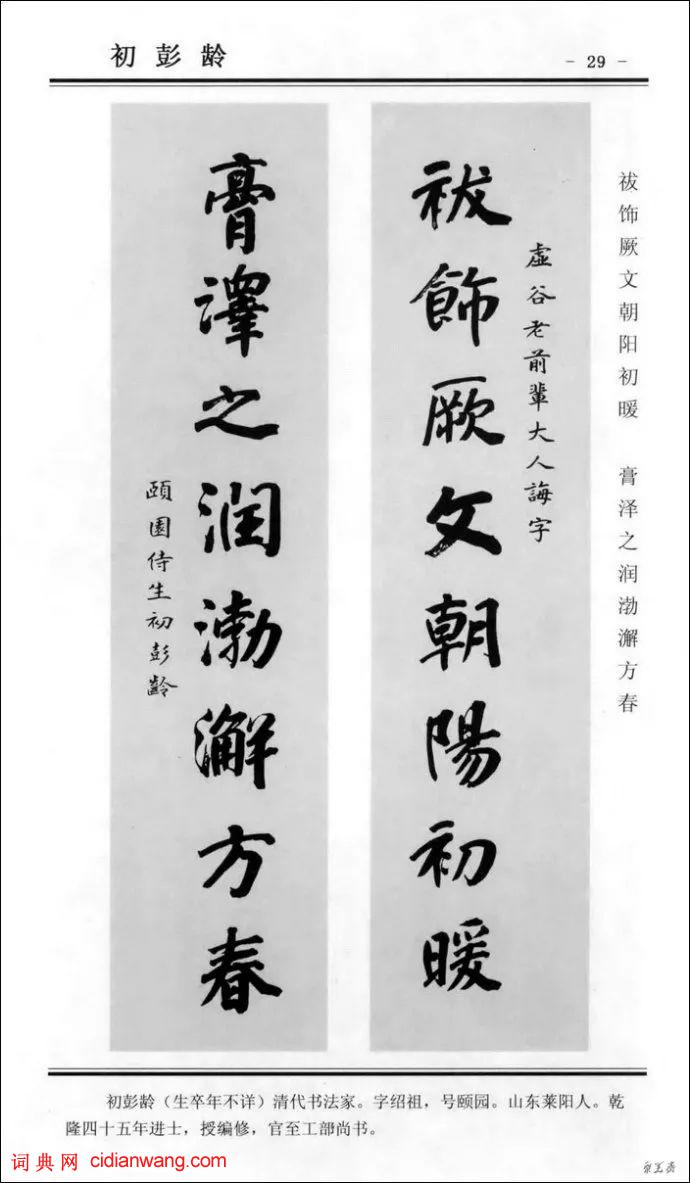 初彭龄
- 29 -
祓饰厥文朝阳初暖　膏泽之润渤澥方春
虛谷老前輩大人誨字
祓飾厥文朝陽初暖
膏澤之润渤澥方春
頤園侍生初彭齡
初彭龄（生卒年不详）清代书法家。字绍祖，号颐园。山东莱阳人。乾
隆四十五年进士，授编修，官至工部尚书。
词典网 cidianwang.com